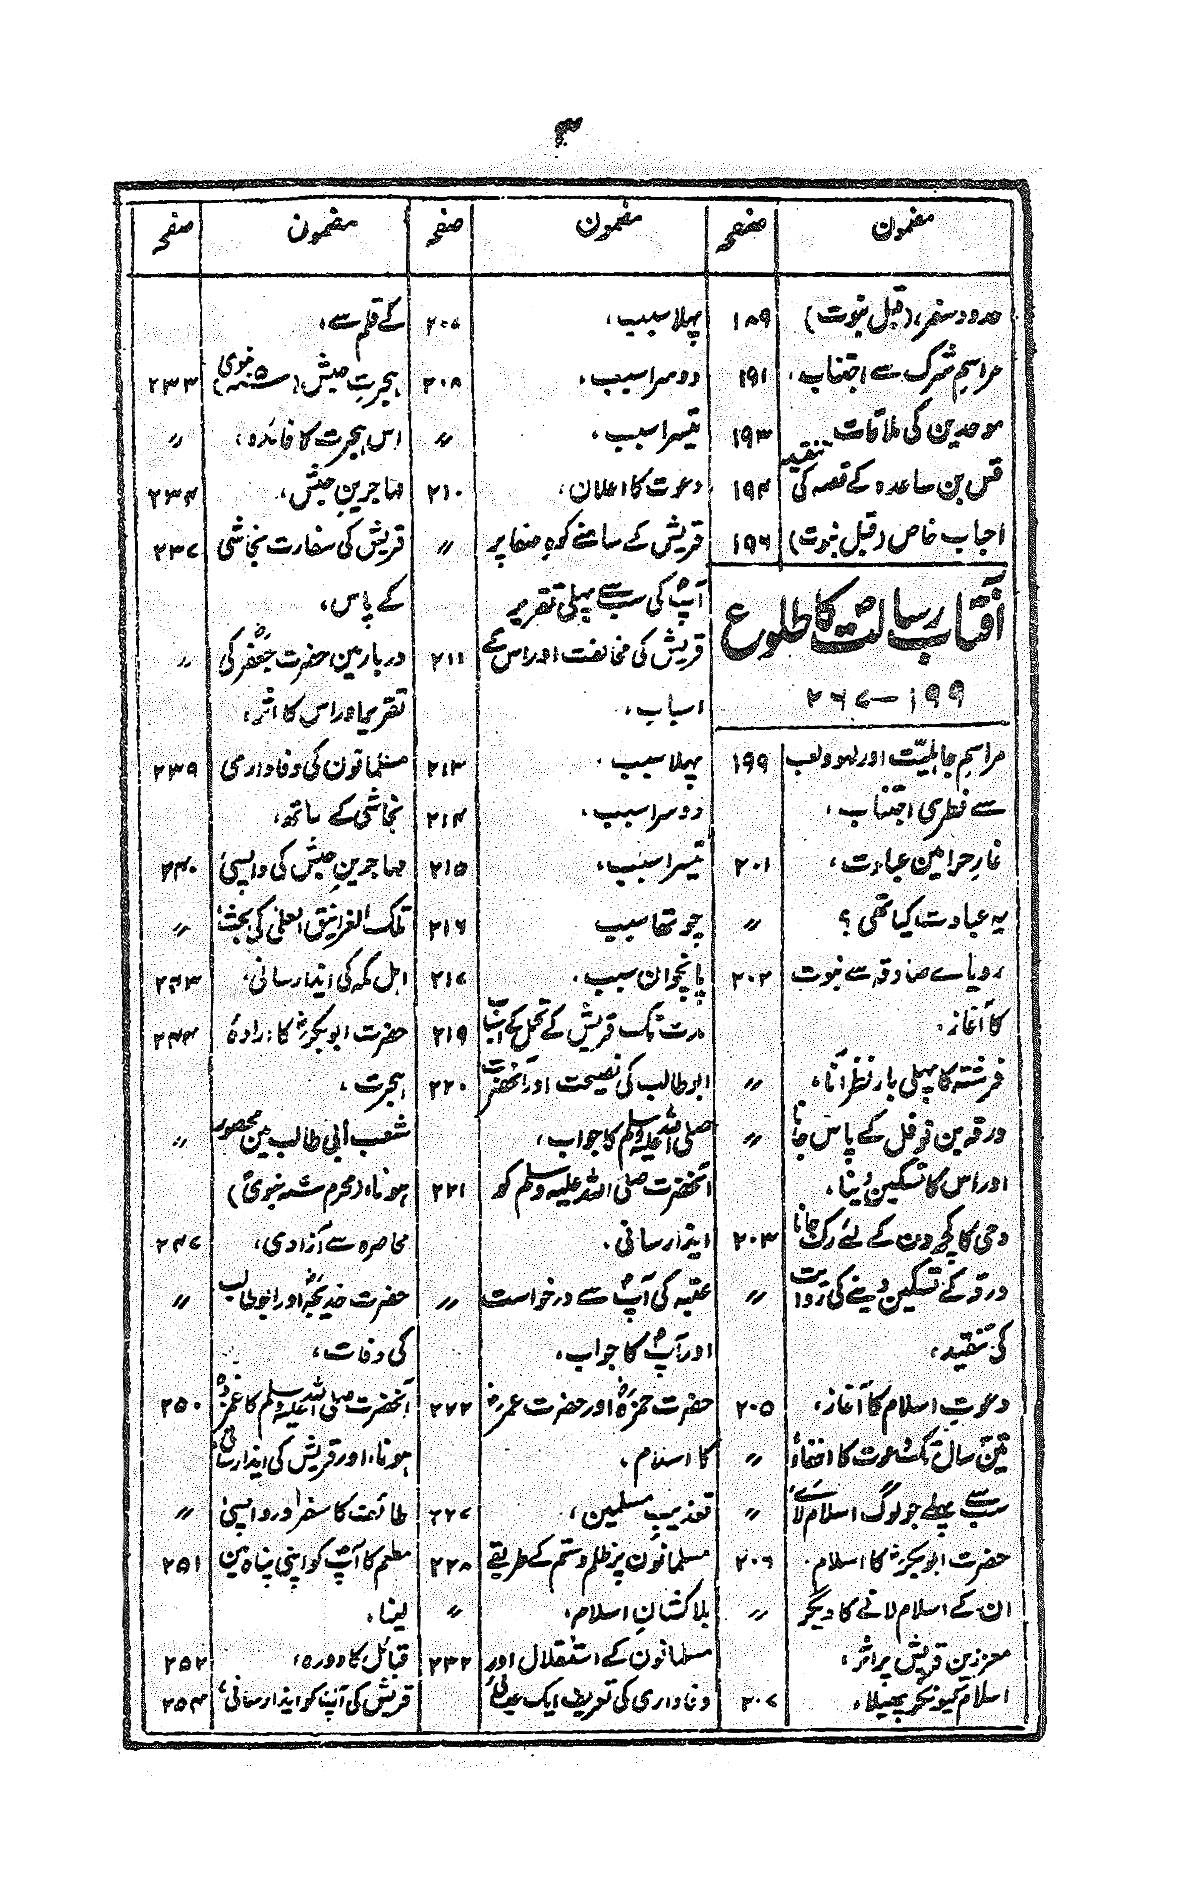 ۳
مضمون صفحہ مضمون صفحہ مضمون صفحہ
حدود سفر، (قبل نبوت) ۱۸۹
مراسم شرک سے اجتناب، ۱۹۱
موحدین کی ملاقات ۱۹۳
قس بن ساعدہ کے قصہ کی تنقید ۱۹۴
احباب خاص (قبل نبوت) ۱۹۶
آفتاب رسالت کا طلوع
۱۹۹-۲۶۷
مراسمِ جاہلیّت اور لہو و لعب ۱۹۹
سے فطری اجتناب،
غارِ حرا مین عبادت، ۲۰۱
یہ عبادت کیا تھی ؟ //
رویاے صادقہ سے نبوت ۲۰۲
کا آغاز،
فرشتہ کا پہلی بار نظر آنا، //
ورقہ بن نوفل کے پاس جانا //
اور اس کا تسکین دینا،
وحی کا کچھ دن کے لئے رک جانا ۲۰۳
ورقہ کے تسکین دینے کی روایت //
کی تنقید،
دعوتِ اسلام کا آغاز، ۲۰۵
تین سال تک دعوت کا اخفاء //
سب سے پہلے جو لوگ اسلام لائے //
حضرت ابوبکرؓ کا اسلام، ۲۰۶
ان کے اسلام لانے کا دیگر //
معززین قریش پر اثر،
اسلام کیونکر پھیلا، ۲۰۷
پہلا سبب، ۲۰۷
دوسرا سبب، ۲۰۸
تیسرا سبب، //
دعوت کا اعلان، ۲۱۰
قریش کے سامنے کوہِ صفا پر //
آپؐ کی سب سے پہلی تقریر
قریش کی مخالفت اور اس کے ۲۱۱
اسباب،
پہلا سبب، ۲۱۳
دوسرا سبب، ۲۱۴
تیسرا سبب، ۲۱۵
چوتھا سبب ۲۱۶
پانچوان سبب، ۲۱۷
مدت تک قریش کے تحمل کے اسباب ۲۱۹
ابوطالب کی نصیحت اور آنحضرت ۲۲۰
صلی اللہ علیہ وسلم کا جواب،
آنحضرت صلی اللہ علیہ وسلم کو ۲۲۱
ایذا رسانی،
عتبہ کی آپؐ سے درخواست //
اور آپؐ کا جواب،
حضرت حمزہؓ اور حضرت عمرؓ ۲۲۲
کا اسلام،
تعذیبِ مسلمین، ۲۲۷
مسلمانون پر ظلم و ستم کے طریقے ۲۲۸
بلاکشانِ اسلام، //
مسلمانون کے استقلال اور ۲۳۲
وفاداری کی تعریف ایک عیسائی
کے قلم سے،
ہجرتِ حبش، (سنہ ۵ نبوی) ۲۳۳
اس ہجرت کا فائدہ، //
مہاجرینِ حبش، ۲۳۴
قریش کی سفارت نجاشی ۲۳۷
کے پاس،
دربار مین حضرت جعفرؓ کی //
تقریر اور اس کا اثر،
مسلمانون کی وفاداری ۲۳۹
نجاشی کے ساتھ،
مہاجرینِ حبش کی واپسی، ۲۴۰
تلک الغرانیق العلیٰ کی بحث، //
اہل مکہ کی ایذا رسانی، ۲۴۳
حضرت ابوبکرؓ کا ارادۂ ۲۴۴
ہجرت،
شعب ابی طالب مین محصور //
ہونا، (محرم سنہ نبوی)
محاصرہ سے آزادی، ۲۴۷
حضرت خدیجہؓ اور ابوطالب //
کی وفات،
آنحضرت صلی اللہ علیہ وسلم کا غمزدہ ۲۵۰
ہونا، اور قریش کی ایذا رسانی
طائف کا سفر اور واپسی //
مطعم کا آپؐ کو اپنی پناہ مین ۲۵۱
لینا،
قبائل کا دورہ، ۲۵۲
قریش کی آپؐ کو ایذا رسانی، ۲۵۴